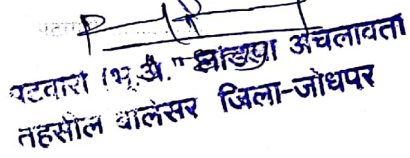 पटवारी (भू.अ.) अचलावता
तहसील बालेसर जिला-जोधपर